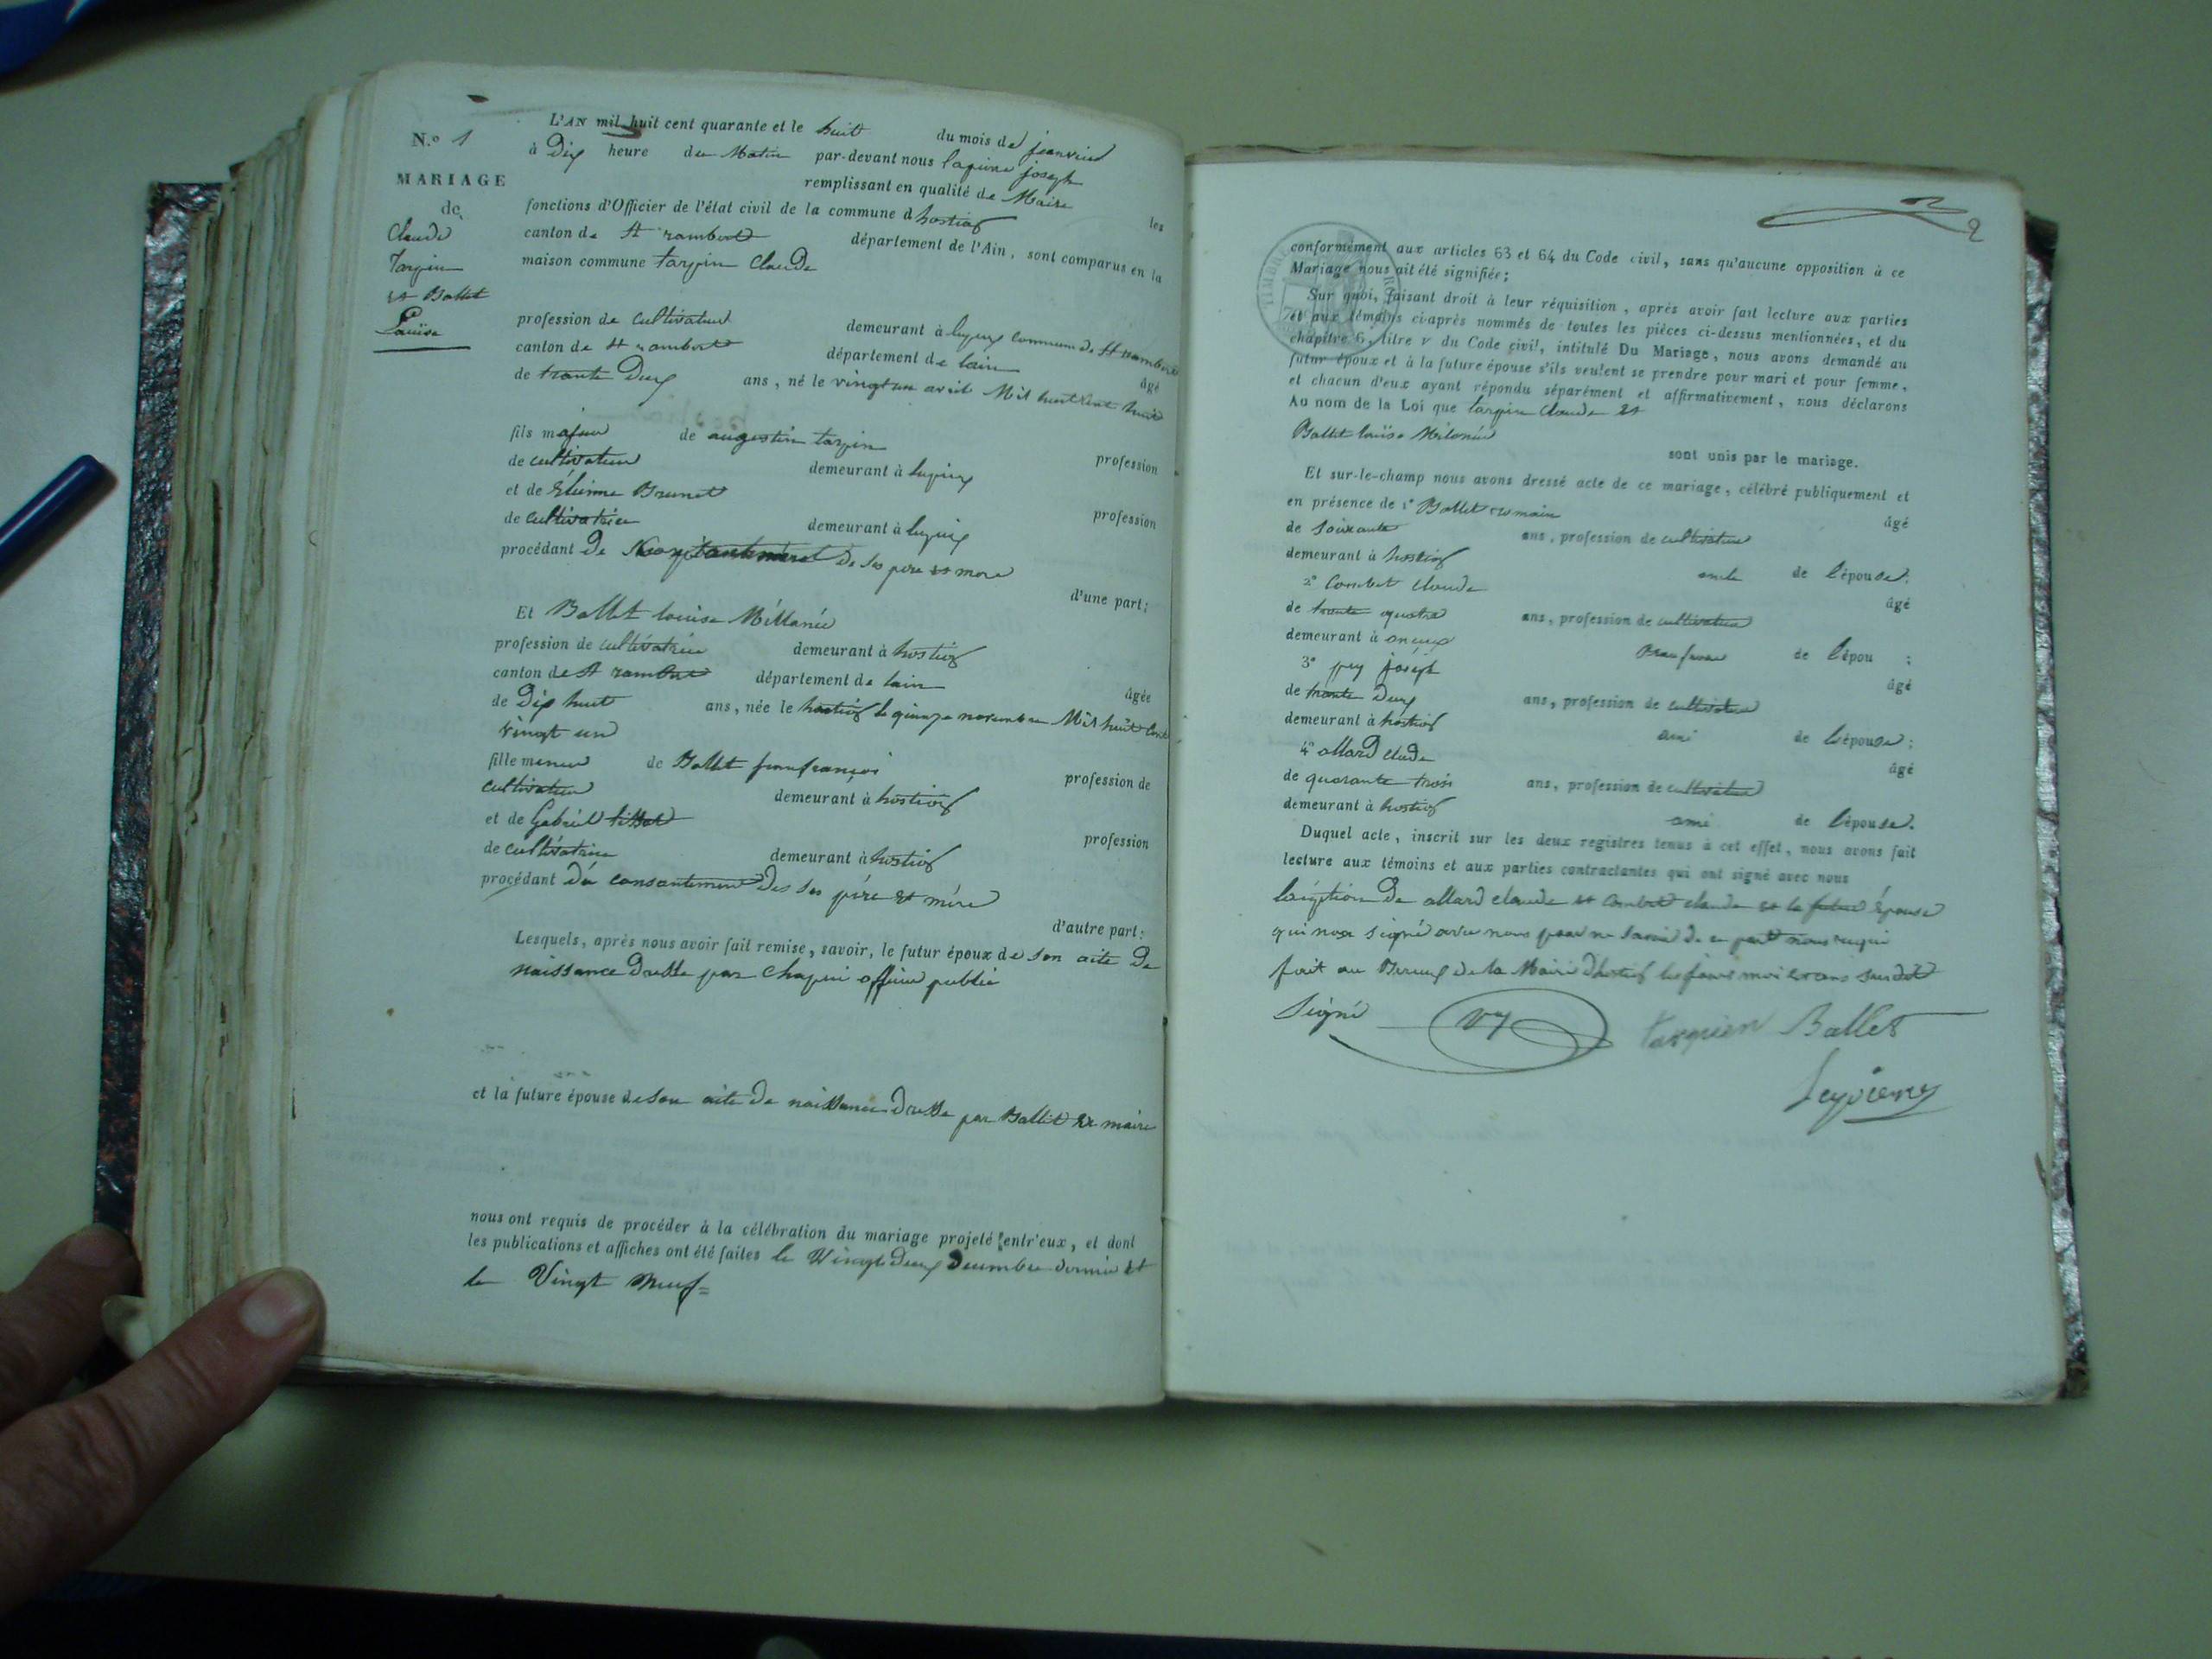 N.o 1
MARIAGE
de
Claude
Tarpin
et Ballet
Louise
L'AN mil huit cent quarante et le huit du mois de janvier
à Dix heure du Matin par-devant nous joseph
remplissant en qualité de Maire les
fonctions d'Officier de l'état civil de la commune d hostiaz
canton de St rambert département de l'Ain, sont comparus en la
maison commune tarpin Claude
profession de cultivateur demeurant à commune de St rambert
canton de St rambert département de lain âgé
de trante Deux ans, né le vingt un avril Mil huit cent huit
fils majeur de augustin tarpin profession
de cultivateur demeurant à
et de Brunet profession
de cultivatrice demeurant à
procédant De De ses pere et mere
d'une part;
Et Ballet louise Mélanie
profession de cultivatrice demeurant à hostiaz
canton de St rambert département de lain âgée
de Dix huit ans, née le hostiaz le quinze novembre Mil huit Cent
vingt un
fille meneur de Ballet jean françois profession de
cultivateur demeurant à hostiaz
et de Gabriel profession
de cultivatrice demeurant à hostiaz
procédant Du consantement Des ses père et mère
d'autre part;
Lesquels, après nous avoir fait remise, savoir, le futur époux de son acte De
naissance Dresse par Chapuis officier public
et la future épouse de son acte De naissance Dresse par Ballet Ex maire
nous ont requis de procéder à la célébration du mariage projeté entr'eux, et dont
les publications et affiches ont été faites le Vingt Deux Decembre dernier et
le Vingt Neuf
2
conformément aux articles 63 et 64 du Code civil, sans qu'aucune opposition à ce
Mariage nous ait été signifiée;
Sur quoi, faisant droit à leur réquisition, après avoir fait lecture aux parties
et aux témoins ci-après nommés de toutes les pièces ci-dessus mentionnées, et du
chapitre 6, titre v du Code civil, intitulé Du Mariage, nous avons demandé au
futur époux et à la future épouse s'ils veulent se prendre pour mari et pour femme,
et chacun d'eux ayant répondu séparément et affirmativement, nous déclarons
Au nom de la Loi que tarpin Claude et
Ballet louise Mélanie
sont unis par le mariage.
Et sur-le-champ nous avons dressé acte de ce mariage, célébré publiquement et
en présence de 1° Ballet romain âgé
de soixante ans, profession de cultivateur
demeurant à hostiaz oncle de l'épouse;
2° Claude âgé
de trante quatre ans, profession de cultivateur
demeurant à Beau frere de l'épou ;
3° joseph âgé
de trante Deux ans, profession de cultivateur
demeurant à hostiaz ami de l'épouse;
4° allard Claude âgé
de quarante trois ans, profession de cultivateur
demeurant à hostiaz ami de l'épouse.
Duquel acte, inscrit sur les deux registres tenus à cet effet, nous avons fait
lecture aux témoins et aux parties contractantes qui ont signé avec nous
De allard claude et claude et la future épouse
qui signé avec nous pour ne savoir De ce
fait au Bureau de la Mairie Dhostiaz les jours moi et ans susdit
Signé
Ballet